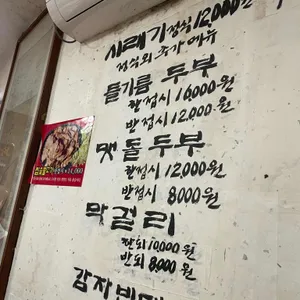 시래기정식 12,000원
정식외 추가메뉴
들기름 두부
한접시 16,000원
반접시 12,000원
맷돌두부
한접시 12,000원
반접시 8000원
막걸리
한되 10,000원
반되 8,000원
감자빈대